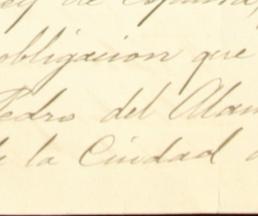 ley de España,
obligacion que
Pedro del Alam
de la Ciudad d